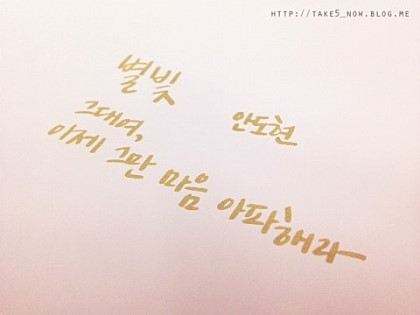 HTTP://TAKE5_NOW.BLOG.ME
별빛
안도현
그대여,
이제 그만 마음 아파해라